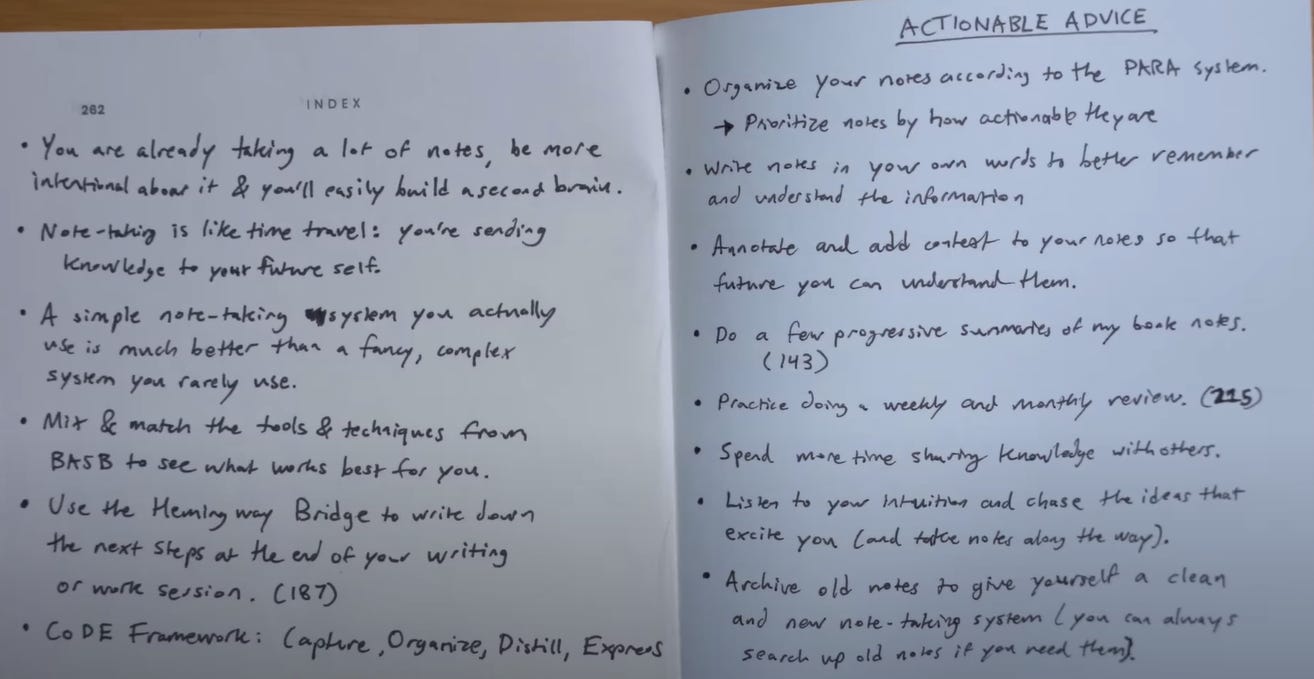 262
INDEX
• You are already taking a lot of notes, be more
intentional about it & you'll easily build a second brain.
• Note-taking is like time travel: you're sending
knowledge to your future self.
• A simple note-taking system you actually
use is much better than a fancy, complex
system you rarely use.
• Mix & match the tools & techniques from
BASB to see what works best for you.
• Use the Hemingway Bridge to write down
the next steps at the end of your writing
or work session. (187)
• CODE Framework: Capture, Organize, Distill, Express
ACTIONABLE ADVICE
• Organize your notes according to the PARA system.
→ Prioritize notes by how actionable they are
• Write notes in your own words to better remember
and understand the information
• Annotate and add context to your notes so that
future you can understand them.
• Do a few progressive summaries of my book notes.
(143)
• Practice doing a weekly and monthly review. (215)
• Spend more time sharing knowledge with others.
• Listen to your intuition and chase the ideas that
excite you (and take notes along the way).
• Archive old notes to give yourself a clean
and new note-taking system (you can always
search up old notes if you need them).